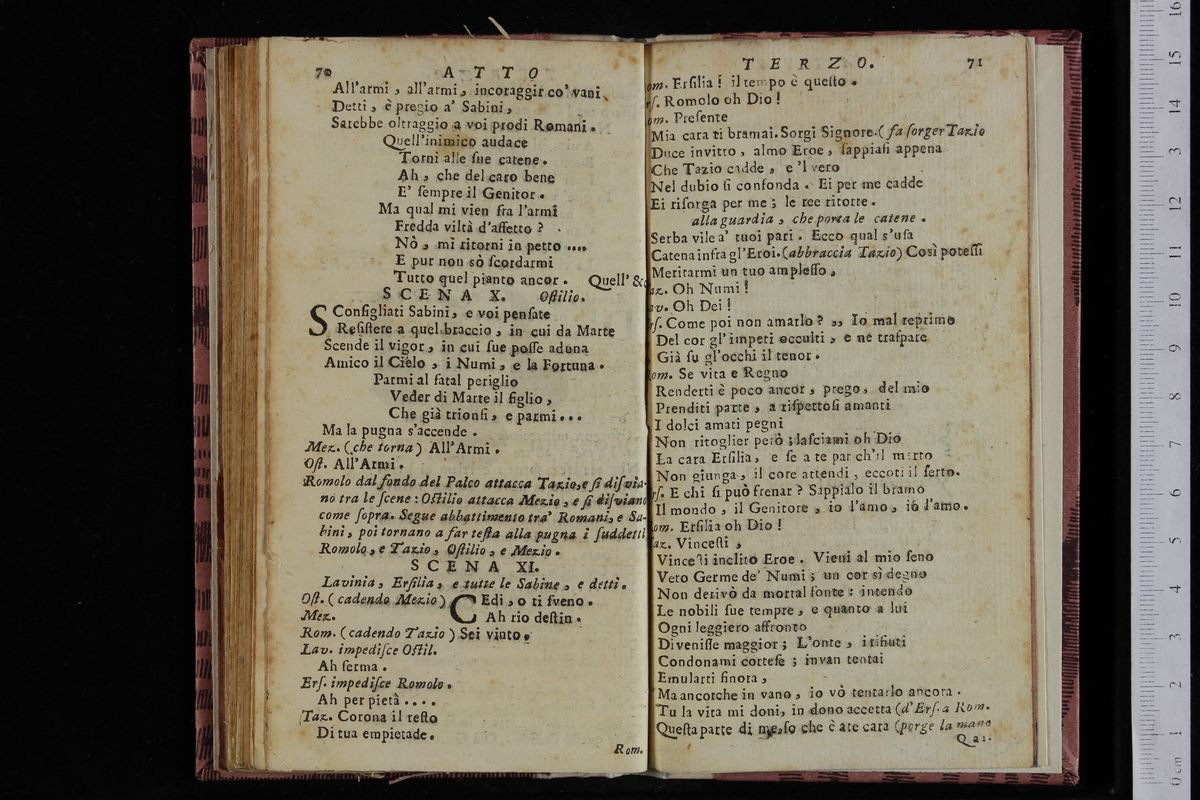 70 ATTO
All'armi, all'armi, incoraggir co' vani
Detti, è pregio a' Sabini,
Sarebbe oltraggio a voi prodi Romani.
Quell'inimico audace
Torni alle ſue catene.
Ah, che del caro bene
E' ſempre il Genitor.
Ma qual mi vien fra l'armi
Fredda viltà d'affetto?
Nò, mi ritorni in petto ....
E pur non sò ſcordarmi
Tutto quel pianto ancor. Quell' &c
SCENA X. Oſtilio.
SConſigliati Sabini, e voi penſate
Reſiſtere a quel braccio, in cui da Marte
Scende il vigor, in cui ſue poſſe aduna
Amico il Cielo, i Numi, e la Fortuna.
Parmi al fatal periglio
Veder di Marte il figlio,
Che già trionfi, e parmi...
Ma la pugna s'accende.
Mez. (che torna) All'Armi.
Oſt. All'Armi.
Romolo dal fondo del Palco attacca Tazio, e ſi diſvia-
no tra le ſcene: Oſtilio attacca Mezio, e ſi diſviano
come ſopra. Segue abbattimento tra' Romani, e Sa-
bini, poi tornano a far teſta alla pugna i ſuddetti
Romolo, e Tazio, Oſtilio, e Mezio.
SCENA XI.
Lavinia, Erſilia, e tutte le Sabine, e detti.
Oſt. (cadendo Mezio) CEdi, o ti ſveno.
Mez. Ah rio deſtin.
Rom. (cadendo Tazio) Sei vinto.
Lav. impediſce Oſtil.
Ah ferma.
Erſ. impediſce Romolo.
Ah per pietà....
Taz. Corona il reſto
Di tua empietade.
Rom.
TERZO. 71
om. Erſilia! il tempo è queſto.
rſ. Romolo oh Dio!
om. Preſente
Mia cara ti bramai. Sorgi Signore. (fa ſorger Tazio
Duce invitto, almo Eroe, ſappiaſi appena
Che Tazio cadde, e 'l vero
Nel dubio ſi confonda. Ei per me cadde
Ei riſorga per me; le ree ritorte.
alla guardia, che porta le catene.
Serba vile a' tuoi pari. Ecco qual s'uſa
Catena infra gl'Eroi. (abbraccia Tazio) Così poteſſi
Meritarmi un tuo ampleſſo,
az. Oh Numi!
av. Oh Dei!
rſ. Come poi non amarlo? „ Io mal reprimo
Del cor gl'impeti occulti, e ne traſpare
Già ſu gl'occhi il tenor.
om. Se vita e Regno
Renderti è poco ancor, prego, del mio
Prenditi parte, a riſpettoſi amanti
I dolci amati pegni
Non ritoglier però; laſciami oh Dio
La cara Erſilia, e ſe a te par ch'il merto
Non giunga, il core attendi, eccoti il ſerto.
rſ. E chi ſi può frenar? Sappialo il bramo
Il mondo, il Genitore, io l'amo, iò l'amo.
om. Erſilia oh Dio!
az. Vinceſti,
Vinceſti inclito Eroe. Vieni al mio ſeno
Vero Germe de' Numi; un cor sì degno
Non derivò da mortal fonte: intendo
Le nobili ſue tempre, e quanto a lui
Ogni leggiero affronto
Diveniſſe maggior; L'onte, i rifiuti
Condonami corteſe; invan tentai
Emularti finora,
Ma ancorche in vano, io vò tentarlo ancora.
Tu la vita mi doni, in dono accetta (d'Erſ. a Rom.
Queſta parte di me, ſo che è a te cara (porge la mano